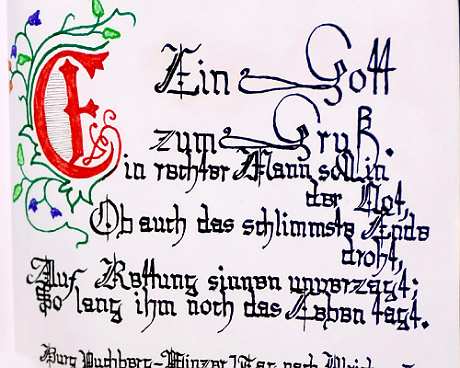 Ein Gott
zum Gruß.
Ein rechter Mann soll in
der Not,
Ob auch das schlimmste Ende
droht,
Auf Rettung sinnen unverzagt;
So lang ihm noch das Leben tagt.
Burg Puchberg-Winzer nach